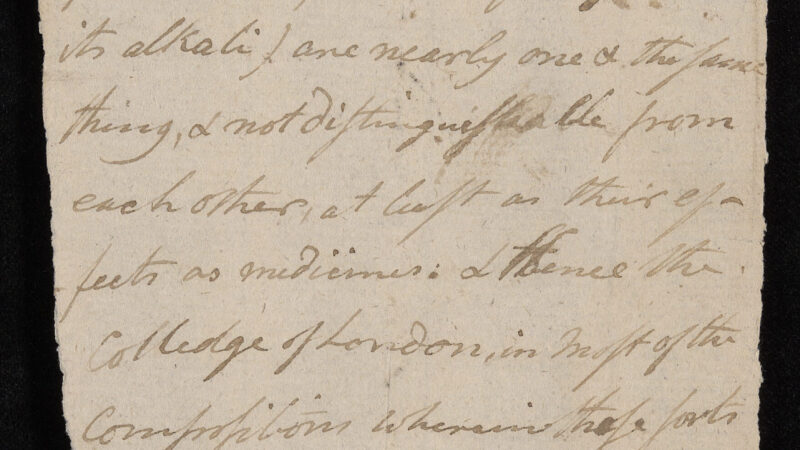 its alkali) are nearly one & the same
thing, & not distinguishable from
each other, at least as their ef-
fects as medicines: & hence the
Colledge of London, in most of the
Compositions wherein these sorts